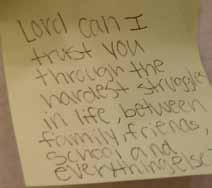 Lord can I
trust you
through the
hardest struggles
in life, between
family, friends,
school and
everything else.